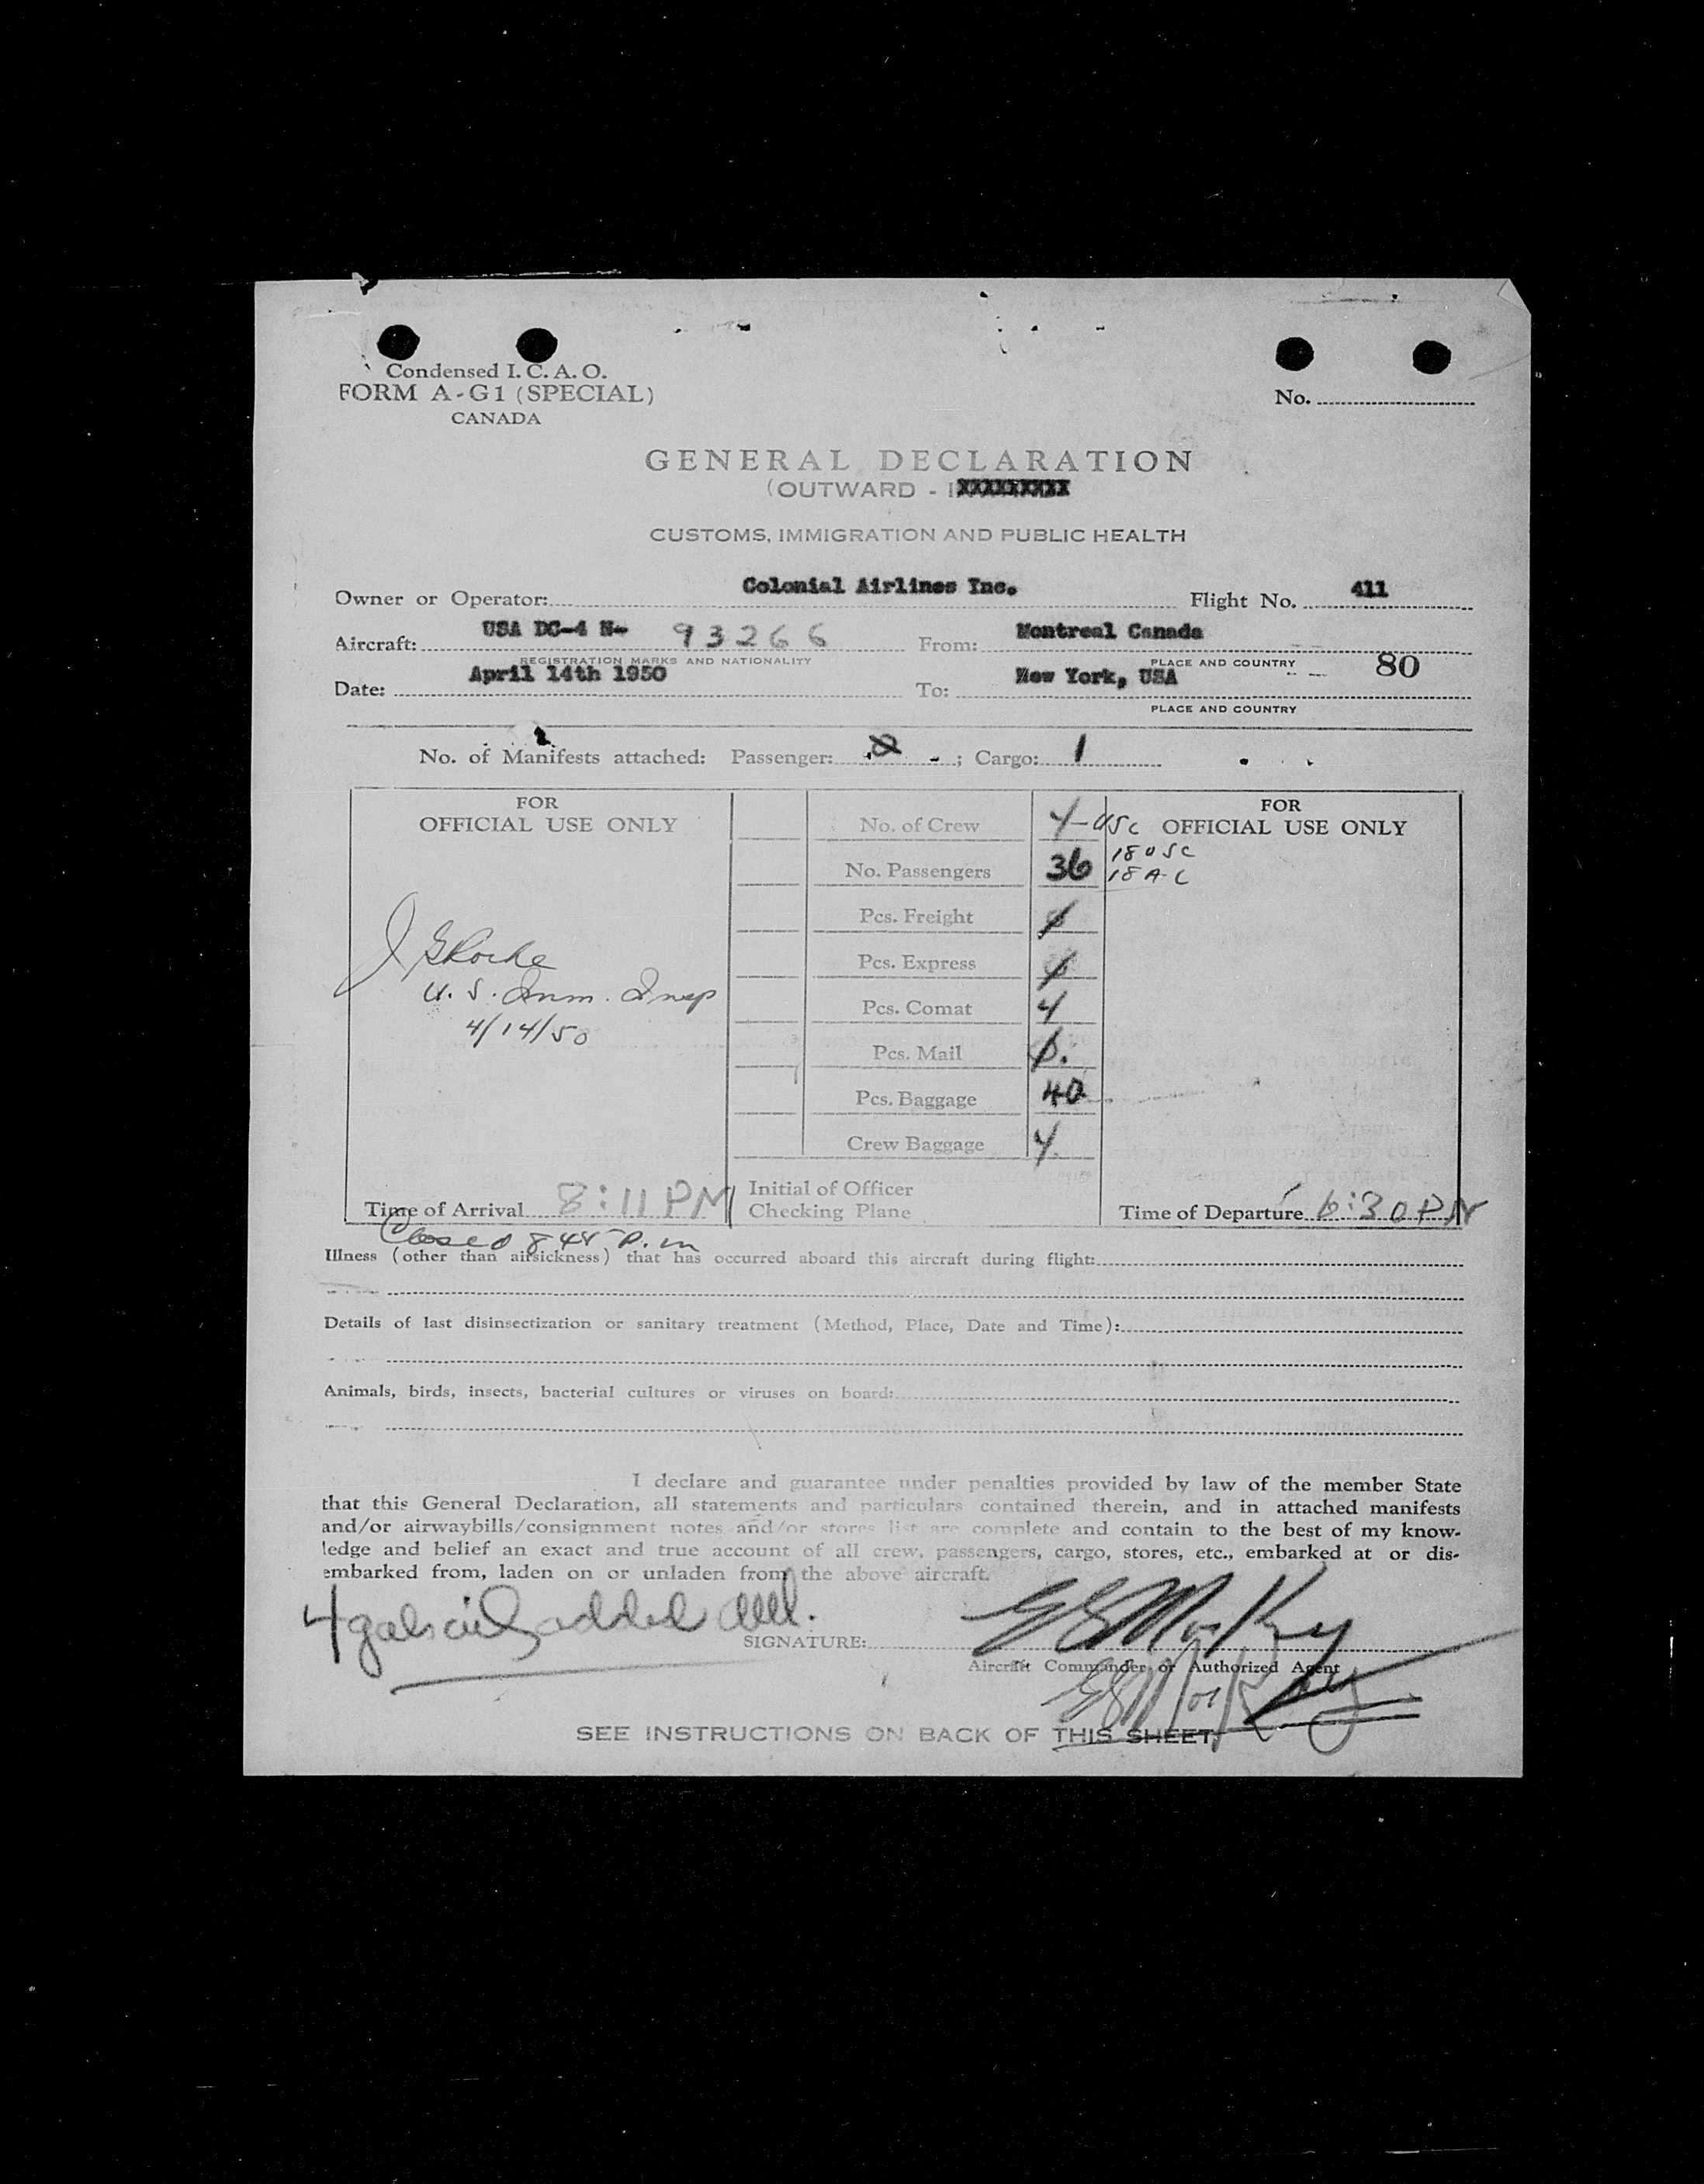 Condensed I. C. A. O.
FORM A-G1 (SPECIAL)
CANADA
No.
GENERAL DECLARATION
(OUTWARD - IXXXXXXXXX
CUSTOMS, IMMIGRATION AND PUBLIC HEALTH
Owner or Operator: Colonial Airlines Inc. Flight No. 411
Aircraft: USA DC-4 N- 93266 From: Montreal Canada
REGISTRATION MARKS AND NATIONALITY PLACE AND COUNTRY 80
Date: April 14th 1950 To: New York, USA
PLACE AND COUNTRY
No. of Manifests attached: Passenger: ; Cargo: 1
FOR
OFFICIAL USE ONLY
J
U. S. Imm. Insp
4/14/50
Time of Arrival 8:11 PM
Closed 848 P.m
No. of Crew 4-USC
No. Passengers 36 18 USC
18 A-C
Pcs. Freight 0
Pcs. Express 0
Pcs. Comat 4
Pcs. Mail 0.
Pcs. Baggage 40
Crew Baggage 4.
Initial of Officer
Checking Plane
FOR
OFFICIAL USE ONLY
Time of Departure 6:30 PM
Illness (other than airsickness) that has occurred aboard this aircraft during flight:
Details of last disinsectization or sanitary treatment (Method, Place, Date and Time):
Animals, birds, insects, bacterial cultures or viruses on board:
I declare and guarantee under penalties provided by law of the member State
that this General Declaration, all statements and particulars contained therein, and in attached manifests
and/or airwaybills/consignment notes and/or stores list are complete and contain to the best of my know-
ledge and belief an exact and true account of all crew, passengers, cargo, stores, etc., embarked at or dis-
embarked from, laden on or unladen from the above aircraft.
4 gals oil added
SIGNATURE: E G MacKey
Aircraft Commander or Authorized Agent
E G MacKey
SEE INSTRUCTIONS ON BACK OF THIS SHEET.